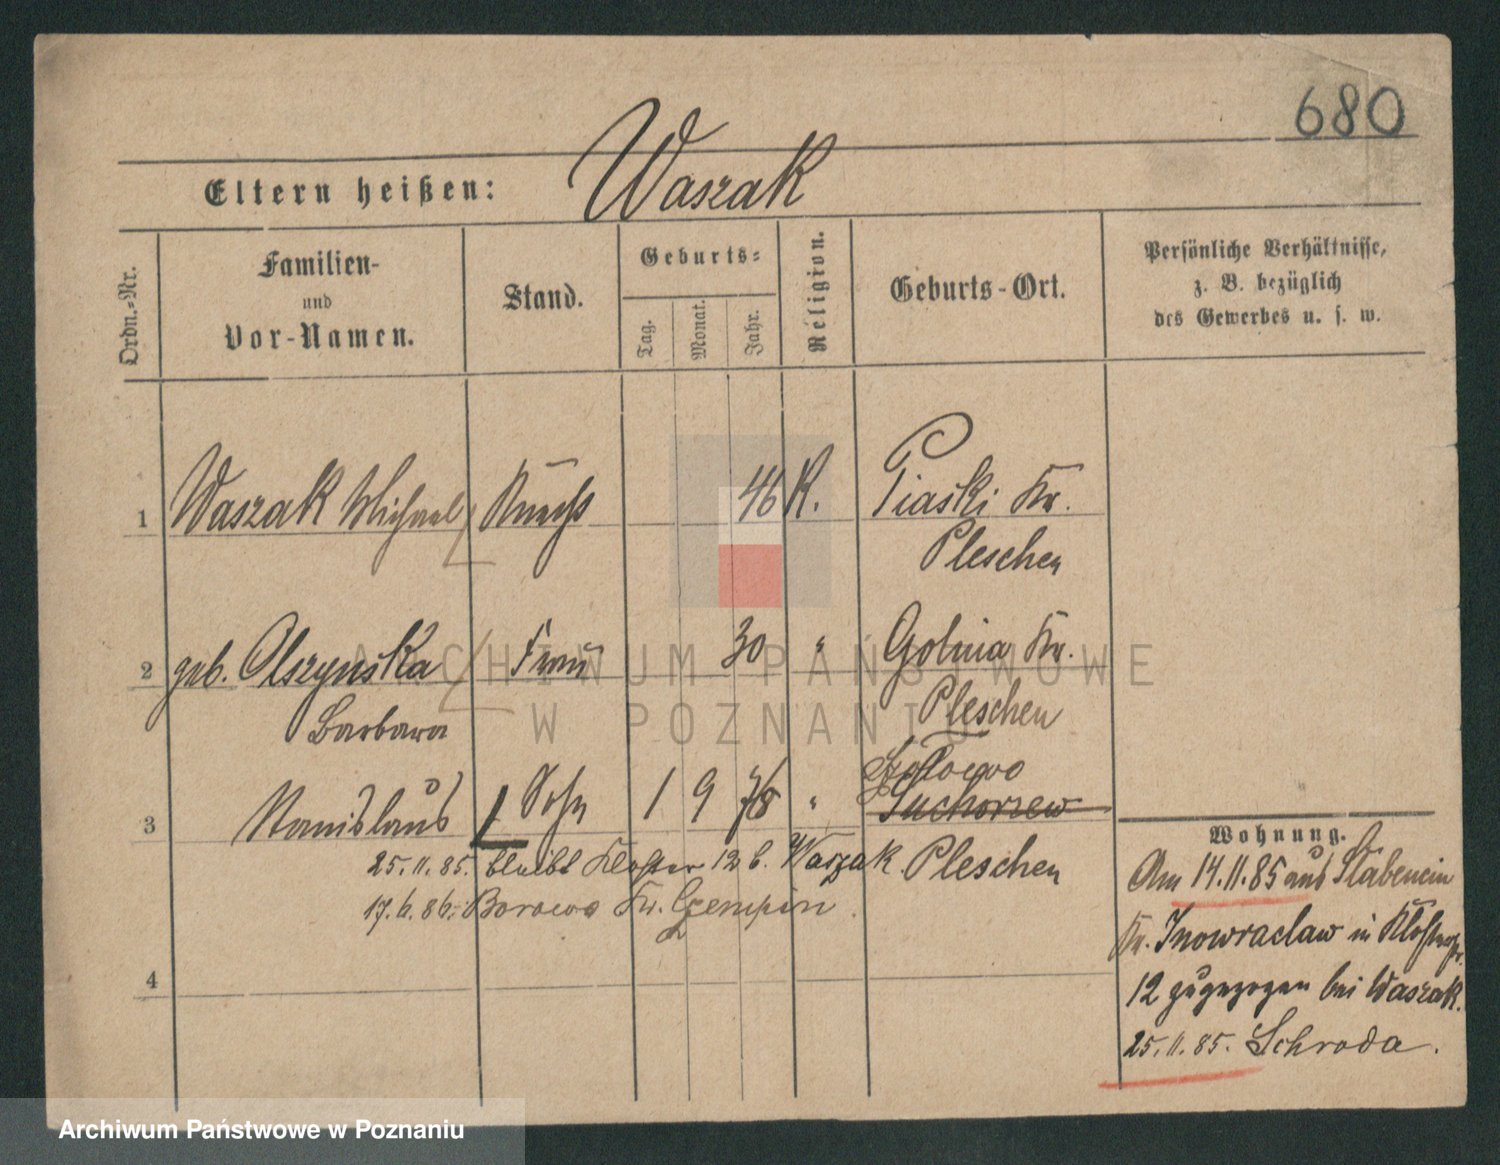 680
Eltern heißen: Waszak
Ordn.-Nr.
Familien-
und
Vor-Namen.
Stand.
Geburts-
Tag. Monat. Jahr.
Religion.
Geburts-Ort.
Persönliche Verhältnisse,
z. B. bezüglich
des Gewerbes u. s. w.
1 Waszak Michael Knecht 46 K. Piaski Kr.
Pleschen
2 geb. Olszynska Frau 30 " Golina Kr.
Barbara Pleschen
3 Stanislaus Sohn 1 9 78 " Suchorzew
Pleschen
25.11.85. bleibt Kloster 12 b. Waszak
17.6.86. Borowo Kr. Czempin.
4
Wohnung.
Am 14.11.85 aus
Kr. Inowraclaw in Klosterstr.
12 zugezogen bei Waszak.
25.11.85. Schroda.
ARCHIWUM PAŃSTWOWE
W POZNANIU
Archiwum Państwowe w Poznaniu